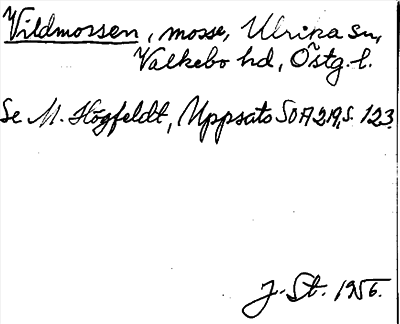 Vildmossen, mosse, Ulrika sn,
Valkebo hd, Östg. l.
Se M. Högfeldt, Uppsats SOA 219, s. 123.
J. St. 1956.